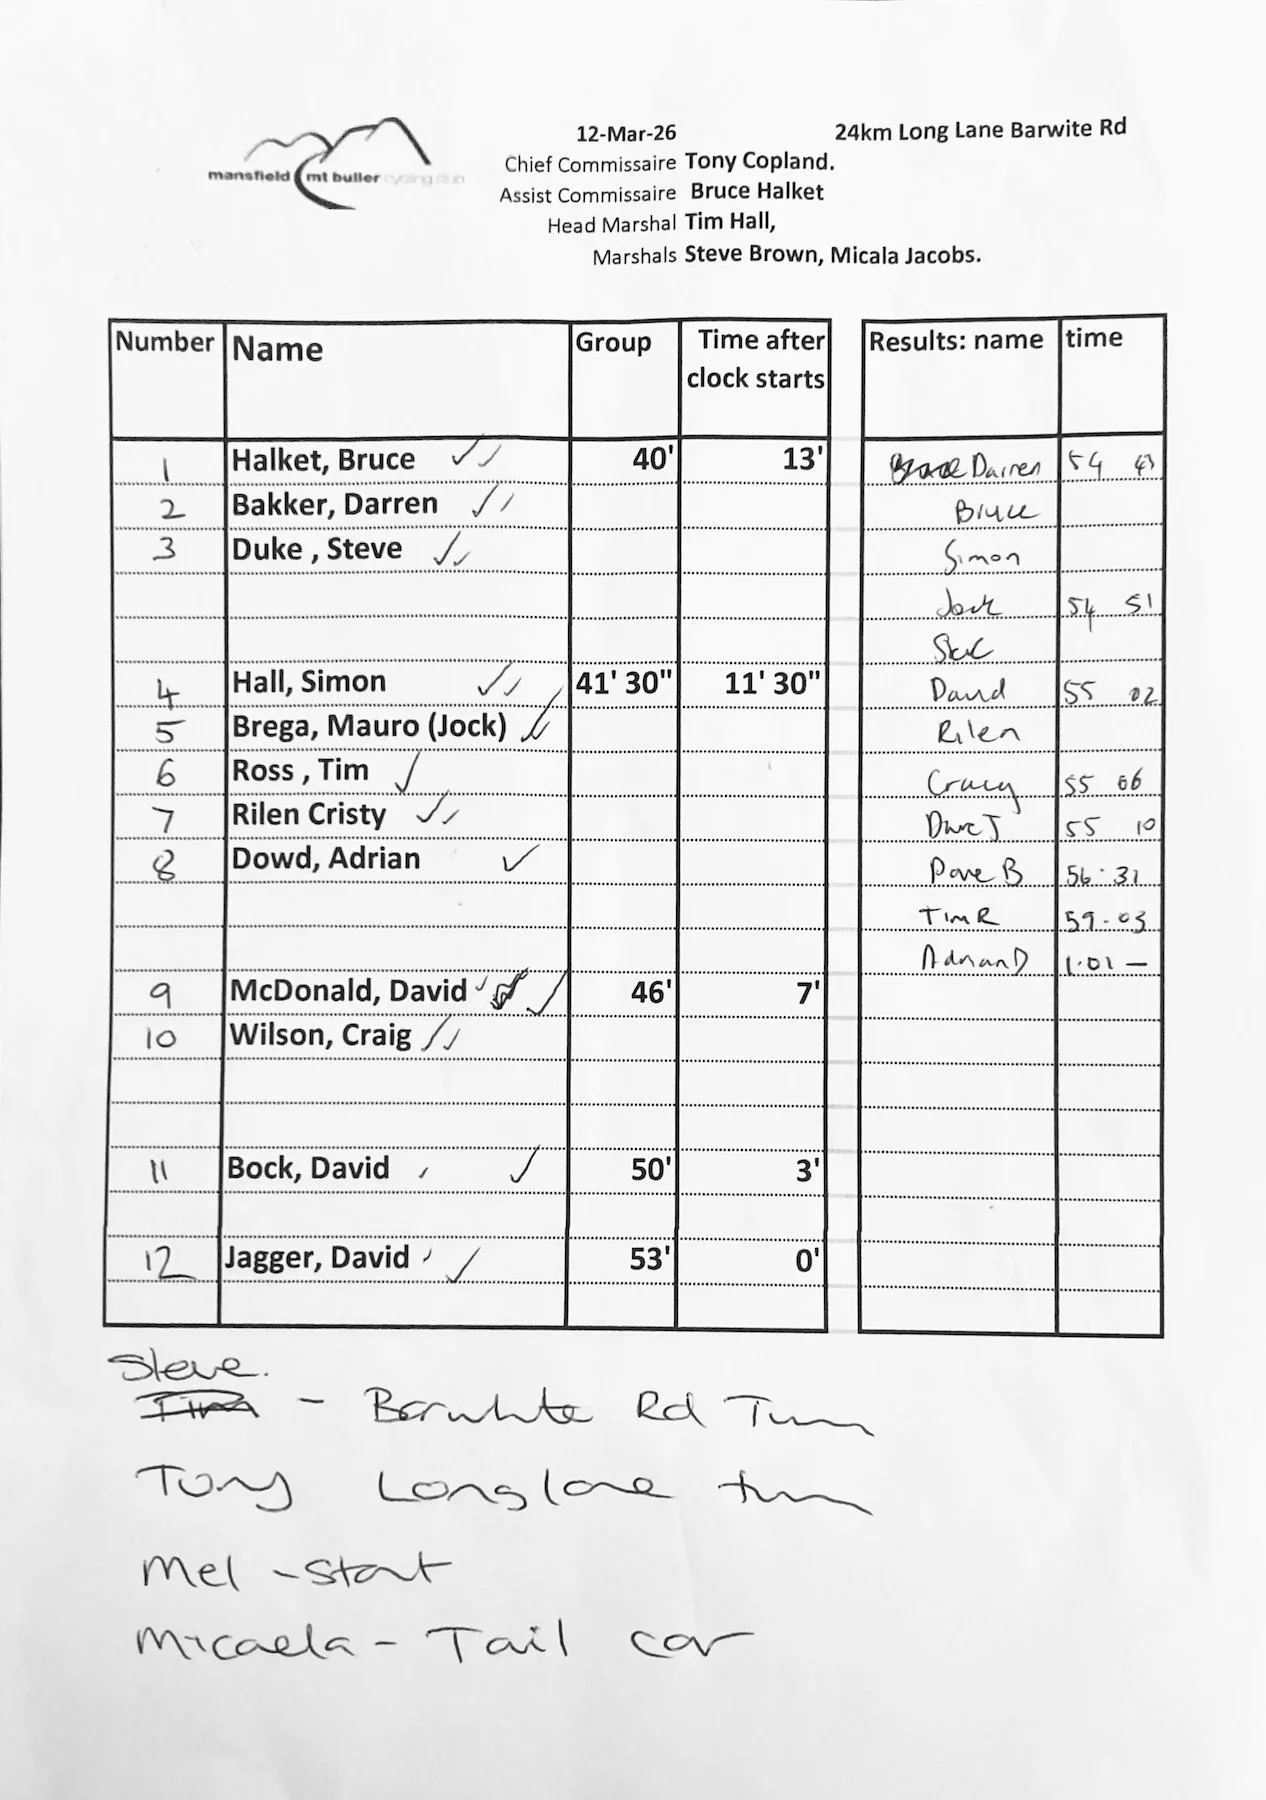 mansfield mt buller cycling club
12-Mar-26 24km Long Lane Barwite Rd
Chief Commissaire Tony Copland.
Assist Commissaire Bruce Halket
Head Marshal Tim Hall,
Marshals Steve Brown, Micala Jacobs.
Number Name Group Time after clock starts
1 Halket, Bruce 40' 13'
2 Bakker, Darren
3 Duke , Steve
4 Hall, Simon 41' 30" 11' 30"
5 Brega, Mauro (Jock)
6 Ross , Tim
7 Rilen Cristy
8 Dowd, Adrian
9 McDonald, David 46' 7'
10 Wilson, Craig
11 Bock, David 50' 3'
12 Jagger, David 53' 0'
Results: name time
Darren 54 43
Bruce
Simon
Jock 54 51
David 55 02
Rilen
Craig 55 06
Dave J 55 10
Dave B 56.31
Tim R 59-03
Adrian D 1.01 —
Steve.
Tim - Barwhite Rd Turn
Tony Longlane turn
Mel - Start
Micaela - Tail car